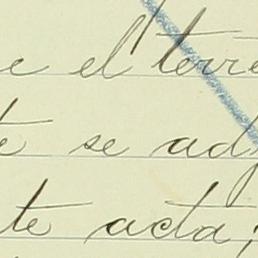 e el terre
te se adj
te acta;